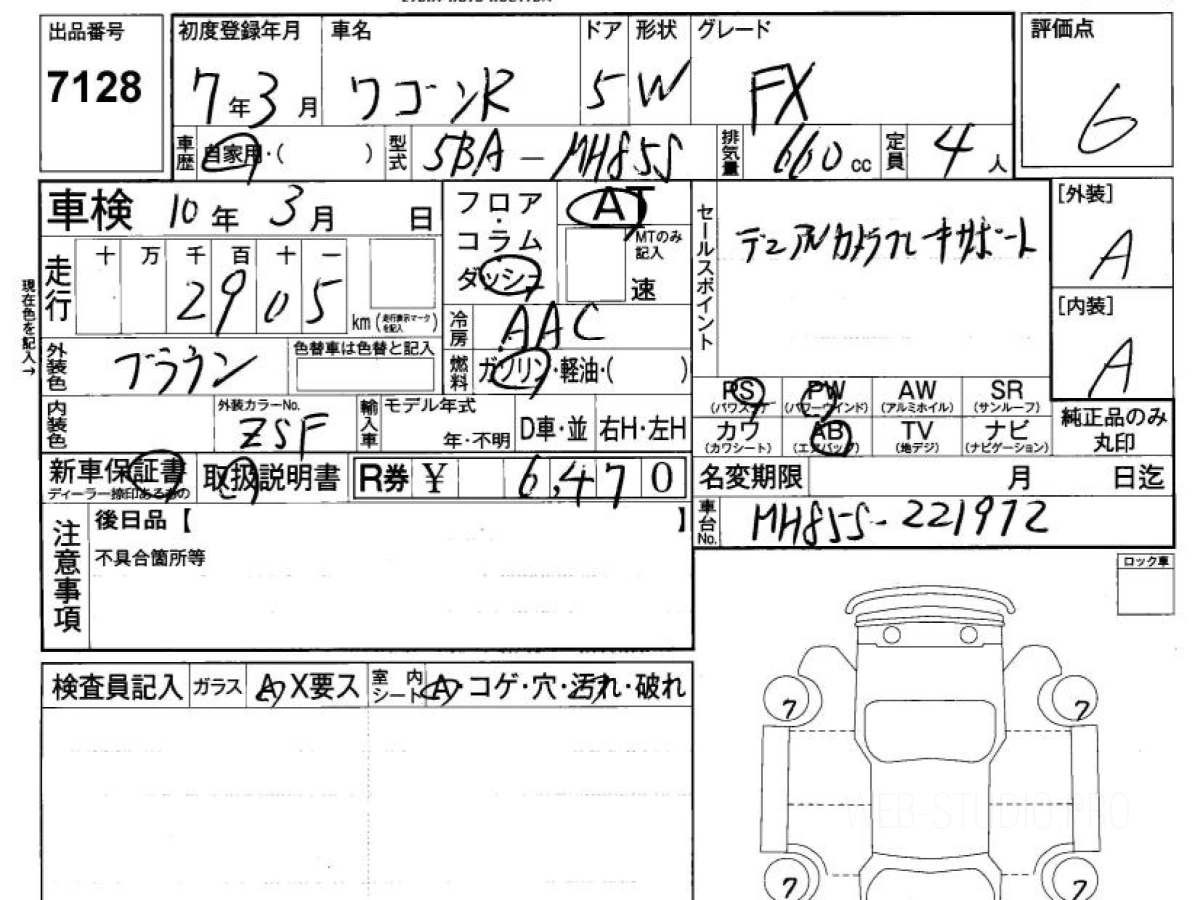 出品番号
7128
初度登録年月
7年3月
車名
ワゴンR
ドア
5
形状
W
グレード
FX
評価点
6
車歴
自家用・( )
型式
5BA-MH85S
排気量
660cc
定員
4人
車検 10年3月 日
フロア・コラム
ダッシュ
AT
MTのみ記入
速
セールスポイント
デュアルカメラブレーキサポート
[外装]
A
[内装]
A
現在色を記入→
走行
十 万 千 百 十 一
2905
km(走行表示マークを記入)
冷房
AAC
外装色
ブラウン
色替車は色替と記入
燃料
ガソリン・軽油・( )
PS
(パワステ)
PW
(パワーウインド)
AW
(アルミホイル)
SR
(サンルーフ)
カワ
(カワシート)
AB
(エアバッグ)
TV
(地デジ)
ナビ
(ナビゲーション)
純正品のみ
丸印
内装色
外装カラーNo.
ZSF
輸入車
モデル年式
年・不明
D車・並
右H・左H
新車保証書
ディーラー捺印あるもの
取扱説明書
R券 ¥ 6,470
名変期限 月 日迄
車台No.
MH85S-221972
注意事項
後日品【 】
不具合箇所等
ロック車
検査員記入
ガラス
A・X要ス
室内シート
A・コゲ・穴・汚れ・破れ
7
7
WEB-STUDIO.PRO
7
7